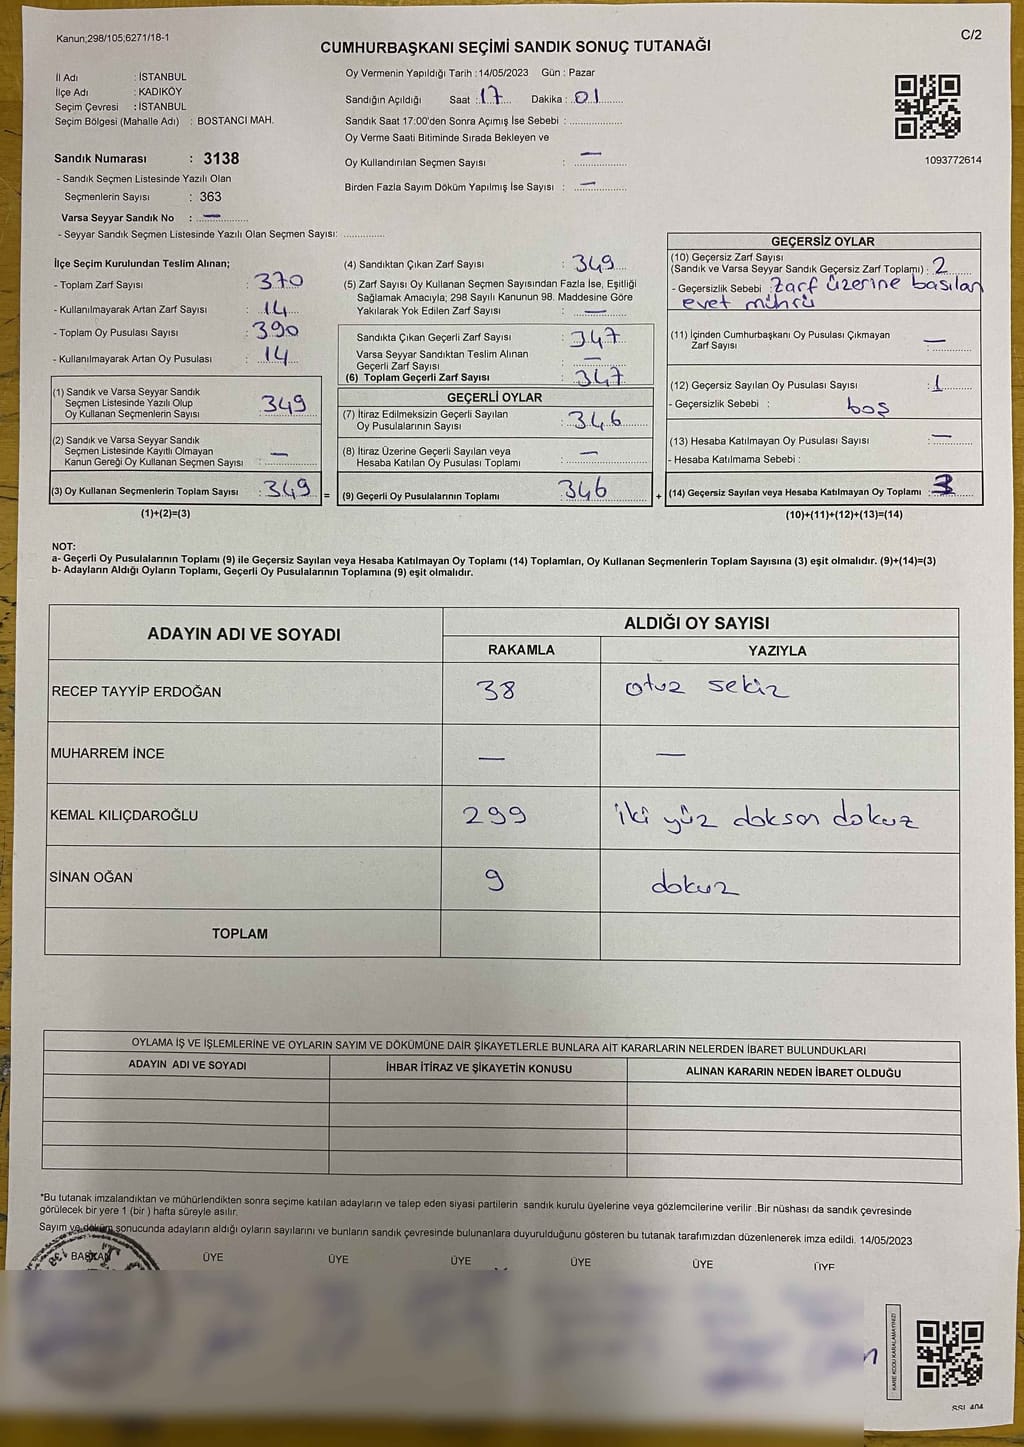 Kanun;298/105;6271/18-1
C/2
CUMHURBAŞKANI SEÇİMİ SANDIK SONUÇ TUTANAĞI
İl Adı : İSTANBUL
İlçe Adı : KADIKÖY
Seçim Çevresi : İSTANBUL
Seçim Bölgesi (Mahalle Adı) : BOSTANCI MAH.
Sandık Numarası : 3138
- Sandık Seçmen Listesinde Yazılı Olan
Seçmenlerin Sayısı : 363
Varsa Seyyar Sandık No : —
- Seyyar Sandık Seçmen Listesinde Yazılı Olan Seçmen Sayısı: ..............
Oy Vermenin Yapıldığı Tarih :14/05/2023 Gün : Pazar
Sandığın Açıldığı Saat : 17 Dakika : 01
Sandık Saat 17:00'den Sonra Açımış İse Sebebi : ..................
Oy Verme Saati Bitiminde Sırada Bekleyen ve
Oy Kullandırılan Seçmen Sayısı : —
Birden Fazla Sayım Döküm Yapılmış İse Sayısı : —
1093772614
İlçe Seçim Kurulundan Teslim Alınan;
- Toplam Zarf Sayısı : 370
- Kullanılmayarak Artan Zarf Sayısı : 14
- Toplam Oy Pusulası Sayısı : 390
- Kullanılmayarak Artan Oy Pusulası : 14
(1) Sandık ve Varsa Seyyar Sandık
Seçmen Listesinde Yazılı Olup
Oy Kullanan Seçmenlerin Sayısı : 349
(2) Sandık ve Varsa Seyyar Sandık
Seçmen Listesinde Kayıtlı Olmayan
Kanun Gereği Oy Kullanan Seçmen Sayısı : —
(3) Oy Kullanan Seçmenlerin Toplam Sayısı : 349 =
(1)+(2)=(3)
(4) Sandıktan Çıkan Zarf Sayısı : 349
(5) Zarf Sayısı Oy Kullanan Seçmen Sayısından Fazla İse, Eşitliği
Sağlamak Amacıyla; 298 Sayılı Kanunun 98. Maddesine Göre
Yakılarak Yok Edilen Zarf Sayısı : —
Sandıkta Çıkan Geçerli Zarf Sayısı : 347
Varsa Seyyar Sandıktan Teslim Alınan
Geçerli Zarf Sayısı : —
(6) Toplam Geçerli Zarf Sayısı : 347
GEÇERLİ OYLAR
(7) İtiraz Edilmeksizin Geçerli Sayılan
Oy Pusulalarının Sayısı : 346
(8) İtiraz Üzerine Geçerli Sayılan veya
Hesaba Katılan Oy Pusulası Toplamı : —
(9) Geçerli Oy Pusulalarının Toplamı 346 +
GEÇERSİZ OYLAR
(10) Geçersiz Zarf Sayısı
(Sandık ve Varsa Seyyar Sandık Geçersiz Zarf Toplamı) : 2
- Geçersizlik Sebebi : Zarf üzerine basılan
evet mührü
(11) İçinden Cumhurbaşkanı Oy Pusulası Çıkmayan
Zarf Sayısı : —
(12) Geçersiz Sayılan Oy Pusulası Sayısı : 1
- Geçersizlik Sebebi : boş
(13) Hesaba Katılmayan Oy Pusulası Sayısı : —
- Hesaba Katılmama Sebebi :
(14) Geçersiz Sayılan veya Hesaba Katılmayan Oy Toplamı : 3
(10)+(11)+(12)+(13)=(14)
NOT:
a- Geçerli Oy Pusulalarının Toplamı (9) ile Geçersiz Sayılan veya Hesaba Katılmayan Oy Toplamı (14) Toplamları, Oy Kullanan Seçmenlerin Toplam Sayısına (3) eşit olmalıdır. (9)+(14)=(3)
b- Adayların Aldığı Oyların Toplamı, Geçerli Oy Pusulalarının Toplamına (9) eşit olmalıdır.
ADAYIN ADI VE SOYADI
ALDIĞI OY SAYISI
RAKAMLA YAZIYLA
RECEP TAYYİP ERDOĞAN 38 otuz sekiz
MUHARREM İNCE — —
KEMAL KILIÇDAROĞLU 299 iki yüz doksan dokuz
SİNAN OĞAN 9 dokuz
TOPLAM
OYLAMA İŞ VE İŞLEMLERİNE VE OYLARIN SAYIM VE DÖKÜMÜNE DAİR ŞİKAYETLERLE BUNLARA AİT KARARLARIN NELERDEN İBARET BULUNDUKLARI
ADAYIN ADI VE SOYADI İHBAR İTİRAZ VE ŞİKAYETİN KONUSU ALINAN KARARIN NEDEN İBARET OLDUĞU
*Bu tutanak imzalandıktan ve mühürlendikten sonra seçime katılan adayların ve talep eden siyasi partilerin sandık kurulu üyelerine veya gözlemcilerine verilir .Bir nüshası da sandık çevresinde
görülecek bir yere 1 (bir ) hafta süreyle asılır.
Sayım ve döküm sonucunda adayların aldığı oyların sayılarını ve bunların sandık çevresinde bulunanlara duyurulduğunu gösteren bu tutanak tarafımızdan düzenlenerek imza edildi. 14/05/2023
BAŞKAN ÜYE ÜYE ÜYE ÜYE ÜYE ÜYE
KARE KODU KARALAMAYINIZ!